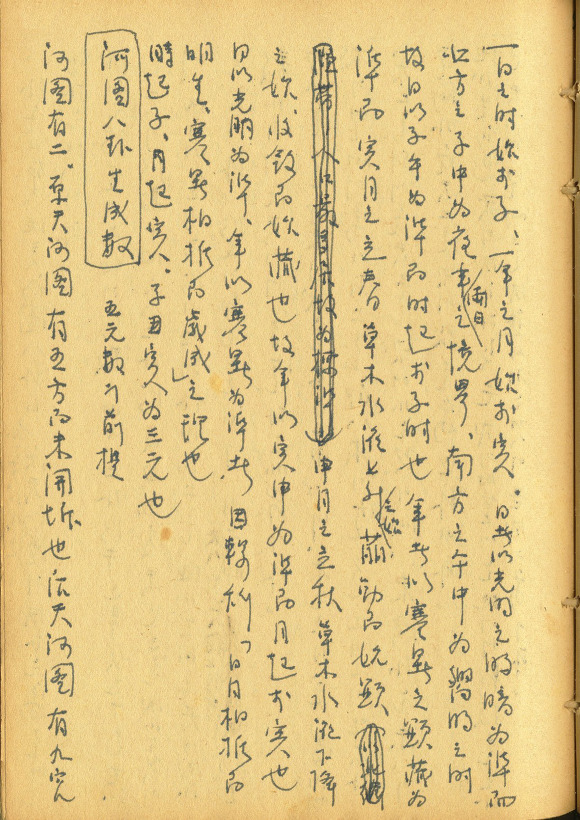 一日之时始于子、一年之月始于寅。日者以光明之明暗为準而
北方之子中为夜半之境界、南方之午中为 时之时
两日
故日以子午为準而时起于子时也 年者以寒暑之显藏为
準而寅月之立春草木水液上升萌动而始显
之始
申月之立秋草木水液下降
之始、收敛而始藏也故年以寅申为準而月起于寅也
日以光明为準、年以寒暑为準者 因 「日月相推而
明生、寒暑相推而岁成」之理也
时起子、月起寅。子丑寅为三元也
河图八卦生成数 五元数之前提
河图有二。原天河图有五方而未开坼也后天河图有九宫